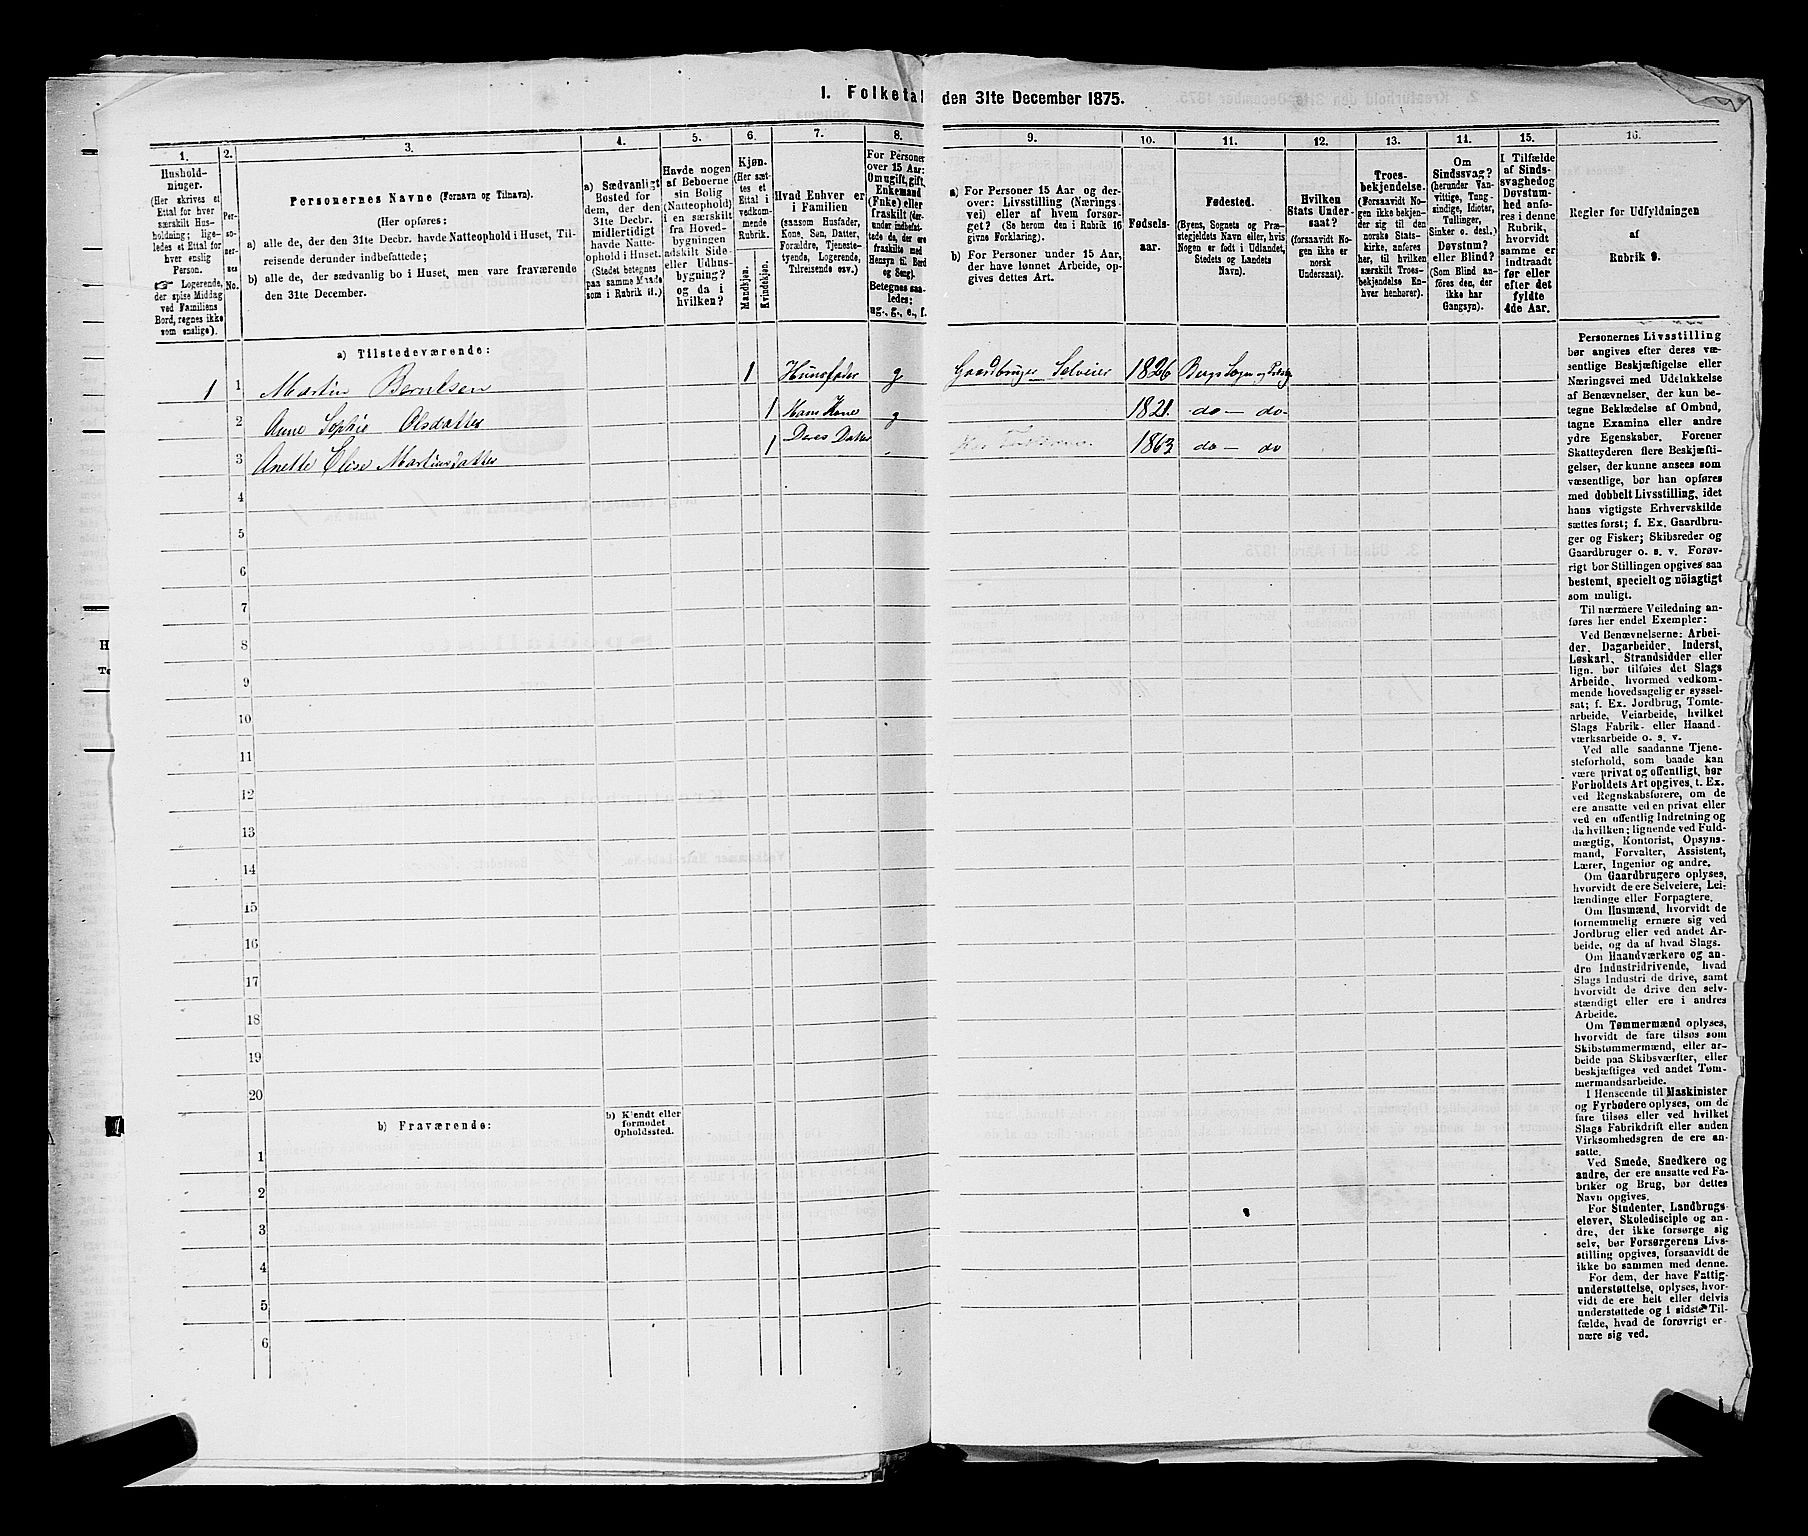 1. Folketal den 31te December 1875.
1.
Hushold-
ninger.
(Her skrives et
Ettal for hver
særskilt Hus-
holdning; lige-
ledes et Ettal for
hver enslig
Person.
☞ Logerende,
der spise Middag
ved Familiens
Bord, regnes ikke
som enslige).
2.
Per-
so-
ner-
nes
No.
3.
Personernes Navne (Fornavn og Tilnavn).
(Her opføres:
a) alle de, der den 31te Decbr. havde Natteophold i Huset, Til-
reisende derunder indbefattede;
b) alle de, der sædvanlig bo i Huset, men vare fraværende
den 31te December.
4.
a) Sædvanligt
Bosted for
dem, der den
31te Decbr.
midlertidigt
havde Natte-
ophold i Huset.
(Stedet betegnes
paa samme Maade
som i Rubrik 11.)
5.
Havde nogen
af Beboerne
sin Bolig
(Natteophold)
i en særskilt
fra Hoved-
bygningen
adskilt Side
eller Udhus-
bygning?
og da i
hvilken?
6.
Kjøn.
(Her sæt-
tes et
Ettal i
vedkom-
mende
Rubrik.
Mandkjøn.
Kvindekjøn.
7.
Hvad Enhver er
i Familien
(saasom Husfader,
Kone, Søn, Datter,
Forældre, Tjeneste-
tyende, Logerende,
Tilreisende osv.)
8.
For Personer
over 15 Aar:
Om ugift, gift,
Enkemand
(Enke) eller
fraskilt (der-
under indbefat-
tede de, der ere
fraskilte med
Hensyn til Bord
og Seng).
Betegnes saa-
ledes:
ug., g., e., f.
9.
a) For Personer 15 Aar og der-
over: Livsstilling (Nærings-
vei) eller af hvem forsør-
get? (Se herom den i Rubrik 16
givne Forklaring).
b) For Personer under 15 Aar,
der have lønnet Arbeide, op-
gives dettes Art.
10.
Fødsels-
aar.
11.
Fødested.
(Byens, Sognets og Præ-
stegjeldets Navn eller, hvis
Nogen er født i Udlandet,
Stedets og Landets
Navn).
12.
Hvilken
Stats Under-
saat?
(forsaavidt No-
gen ikke er
norsk
Undersaat).
13.
Troes-
bekjendelse.
(Forsaavidt No-
gen ikke bekjen-
der sig til den
norske Stats-
kirke, anføres
her, til hvilken
særskilt Troes-
bekjendelse En-
hver henhører).
14.
Om
Sindssvag?
(herunder Van-
vittige, Tung-
sindige, Idioter,
Tullinger,
Sinker o. desl.)
Døvstum?
eller Blind?
(Som Blind an-
føres den, der
ikke har
Gangsyn).
15.
I Tilfælde
af Sinds-
svaghed og
Døvstum-
hed anfø-
res i denne
Rubrik,
hvorvidt
samme er
indtraadt
før eller
efter det
fyldte
4de Aar.
16.
Regler for Udfyldningen
af
Rubrik 9.
a) Tilstedeværende:
1 1 Martin Berntsen 1 Huusfader g Gaardbruger Selveier 1826 Bergs Sogn og
2 Anne Sophie Olsdatter 1 Hans Kone g 1821. do — do
3 Anette Elise Martinsdatter 1 Deres Datter 1863 do — do
4
5
6
7
8
9
10
11
12
13
14
15
16
17
18
19
20
b) Fraværende:
b) Kjendt eller
formodet
Opholdssted.
1
2
3
4
5
6
Personernes Livsstilling
bør angives efter deres væ-
sentlige Beskjæftigelse eller
Næringsvei med Udelukkelse
af Benævnelser, der kun be-
tegne Beklædelse af Ombud,
tagne Examina eller andre
ydre Egenskaber. Forener
Skatteyderen flere Beskjæfti-
gelser, der kunne ansees som
væsentlige, bør han opføres
med dobbelt Livsstilling, idet
hans vigtigste Erhvervskilde
sættes først; f. Ex. Gaardbru-
ger og Fisker; Skibsreder og
Gaardbruger o. s. v. Forøv-
rigt bør Stillingen opgives saa
bestemt, specielt og nöiagtigt
som muligt.
Til nærmere Veiledning an-
føres her endel Exempler:
Ved Benævnelserne: Arbei-
der, Dagarbeider, Inderst,
Løskarl, Strandsidder eller
lign. bør tilføies det Slags
Arbeide, hvormed vedkom-
mende hovedsagelig er syssel-
sat; f. Ex. Jordbrug, Tomte-
arbeide, Veiarbeide, hvilket
Slags Fabrik- eller Haand-
værksarbeide o. s. v.
Ved alle saadanne Tjene-
steforhold, som baade kan
være privat og offentligt, bør
Forholdets Art opgives, t. Ex.
ved Regnskabsførere, om de
ere ansatte ved en privat eller
ved en offentlig Indretning og
da hvilken; lignende ved Fuld-
mægtig, Kontorist, Opsyns-
mand, Forvalter, Assistent,
Lærer, Ingeniør og andre.
Om Gaardbrugere oplyses,
hvorvidt de ere Selveiere, Lei-
lændinge eller Forpagtere.
Om Husmænd, hvorvidt de
fornemmelig ernære sig ved
Jordbrug eller ved andet Ar-
beide, og da af hvad Slags.
Om Haandværkere og an-
dre Industridrivende, hvad
Slags Industri de drive, samt
hvorvidt de drive den selv-
stændigt eller ere i andres
Arbeide.
Om Tømmermænd oplyses,
hvorvidt de fare tilsøs som
Skibstømmermænd, eller ar-
beide paa Skibsværfter, eller
beskjæftiges ved andet Tøm-
mermandsarbeide.
I Henseende til Maskinister
og Fyrbødere oplyses, om de
fare tilsøs eller ved hvilket
Slags Fabrikdrift eller anden
Virksomhedsgren de ere an-
satte.
Ved Smede, Snedkere og
andre, der ere ansatte ved Fa-
briker og Brug, bør dettes
Navn opgives.
For Studenter, Landbrugs-
elever, Skoledisciple og an-
dre, der ikke forsørge sig
selv, bør Forsørgerens Livs-
stilling opgives, forsaavidt de
ikke bo sammen med denne.
For dem, der have Fattig-
understøttelse, oplyses, hvor-
vidt de ere helt eller delvis
understøttede og i sidste Til-
fælde, hvad de forøvrigt er-
nære sig ved.